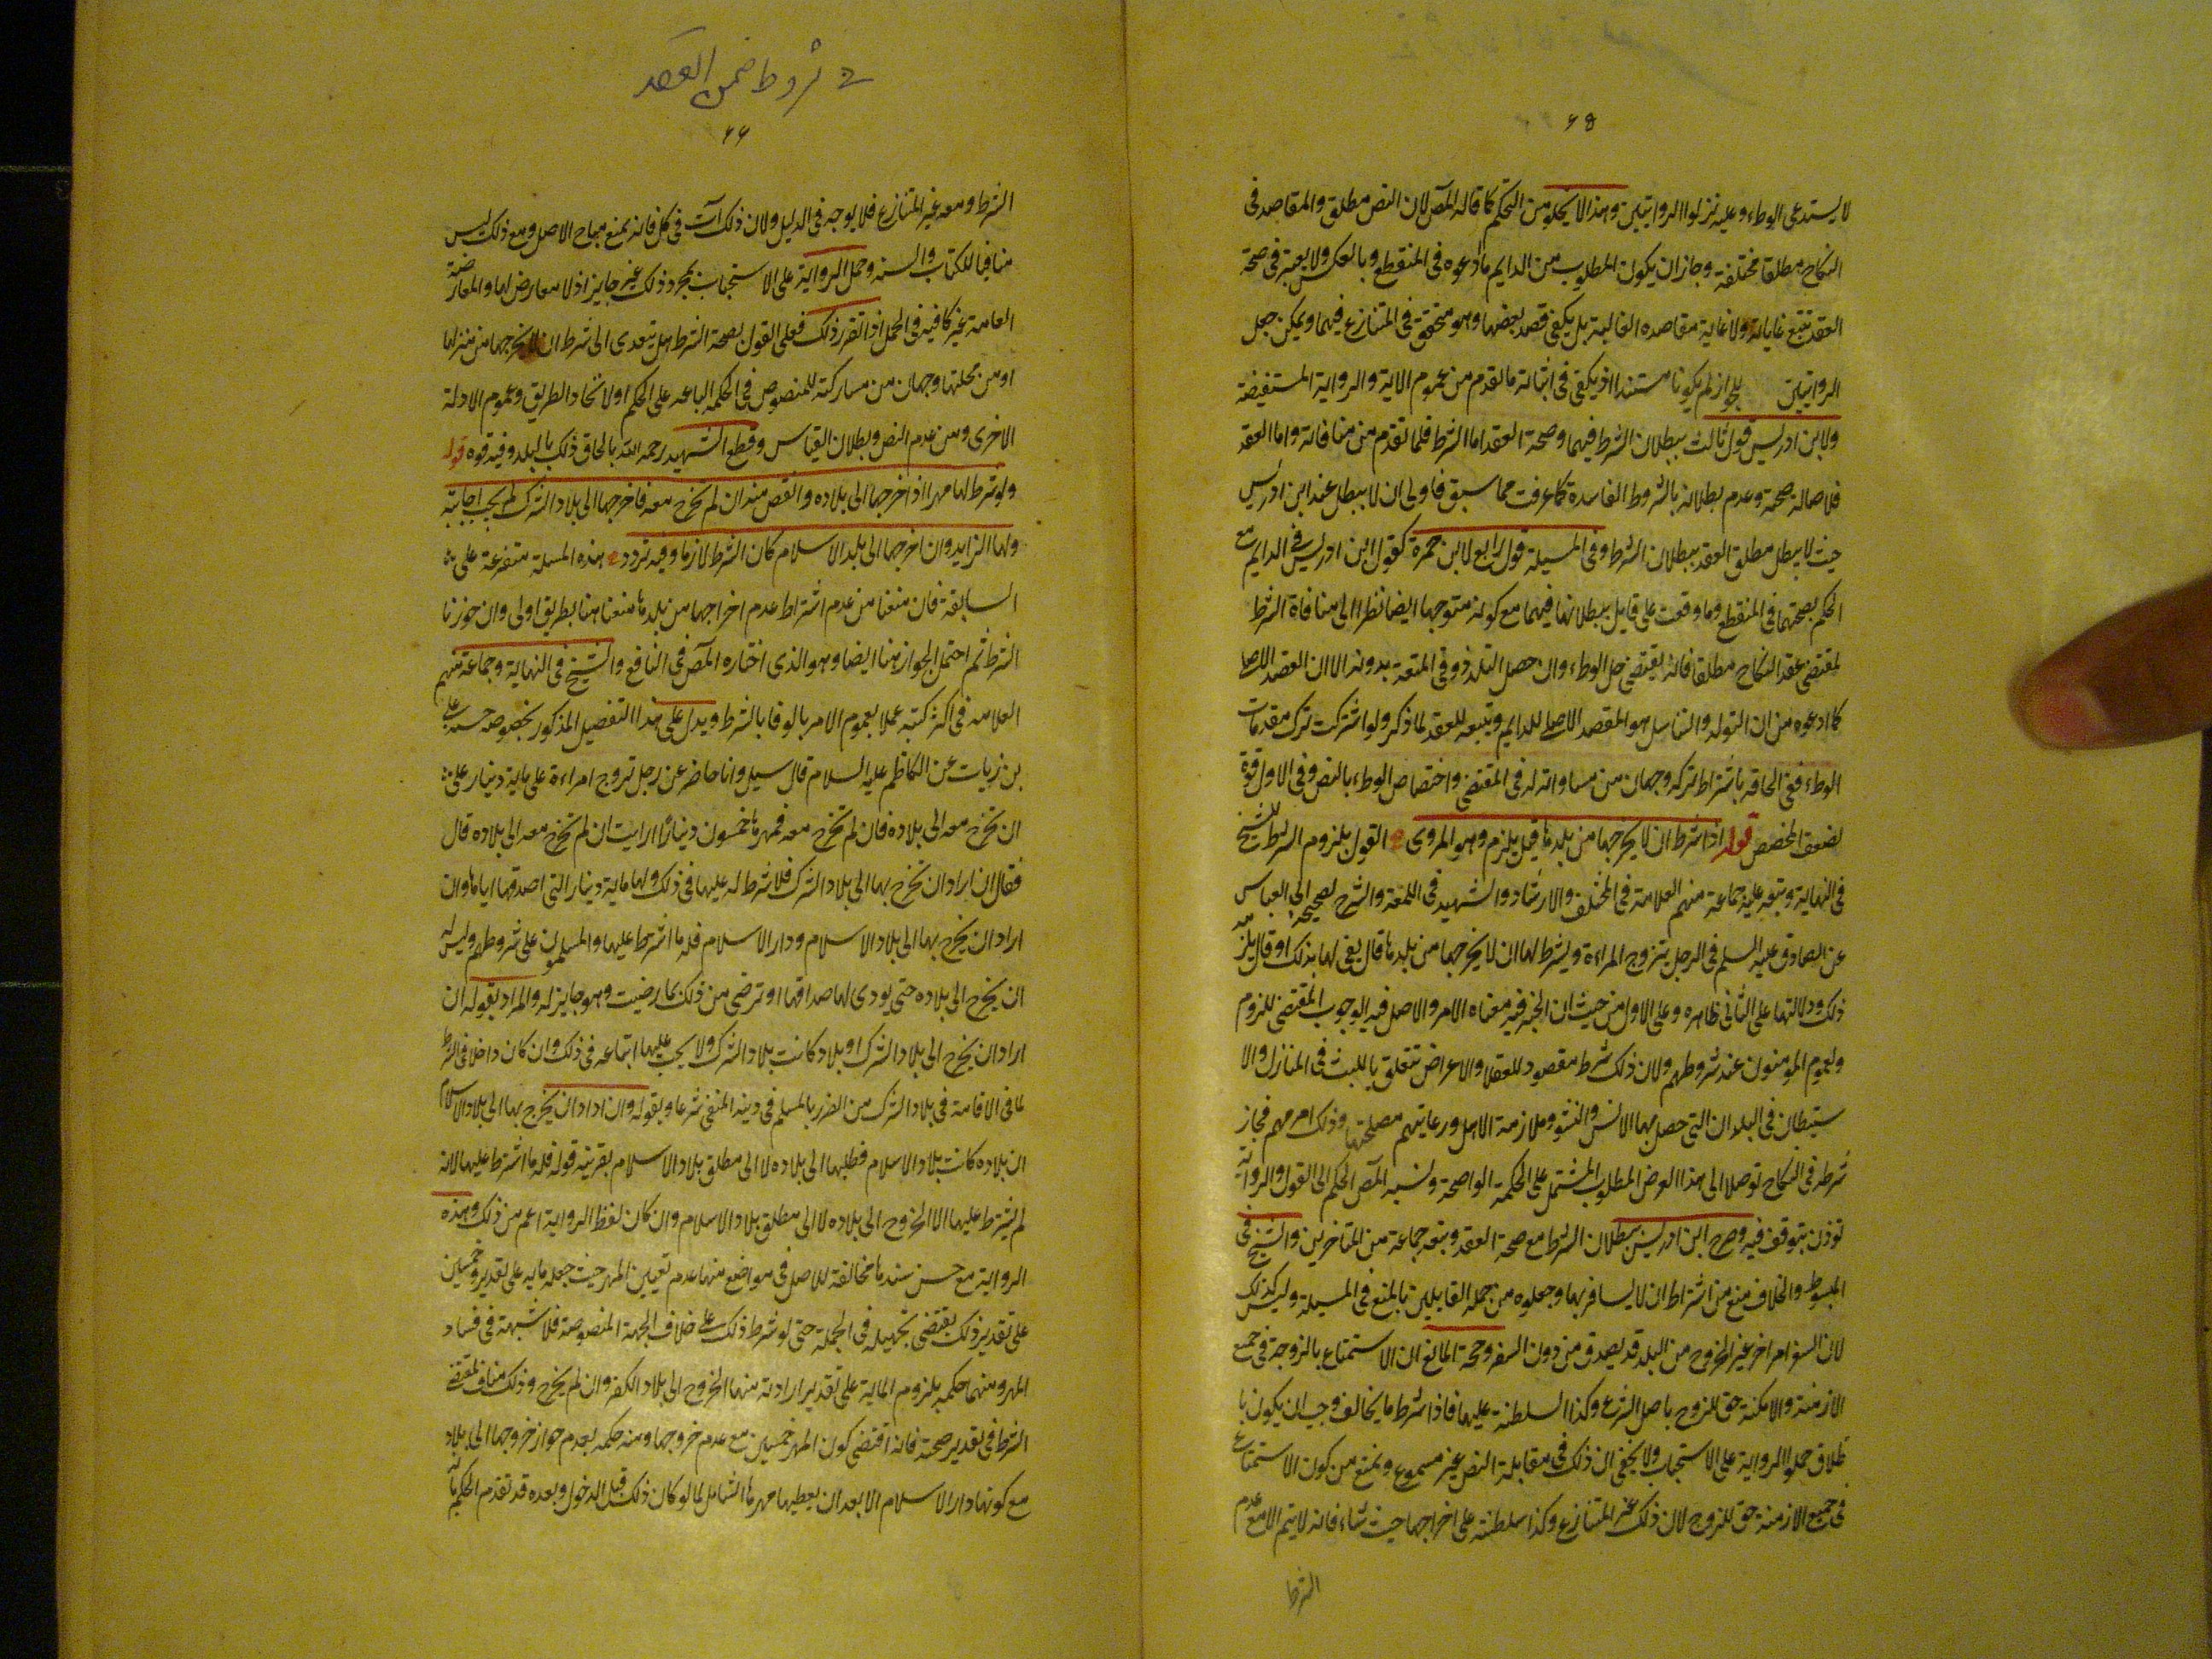 ٦٥
لا يستدعى الوطء وعليه نزلوا الروايتين وهذا لا يخلو من التحكم كما قاله المص لان النص مطلق والمقاصد فى
النكاح مطلقا مختلفة وجاز ان يكون المطلوب من الدايم ما ادعوه فى المنقطع وبالعكس ولا يعتبر فى صحة
العقد تتبع غاياته ولا غاية مقاصده الغالبة بل يكفى قصد بعضها وهو متحقق فى المتنازع فيهما ويمكن جعل
الروايتين بجواز لم يكونا مستندا اذ يكفى فى اثباته ما تقدم من عموم الاية والرواية المستفيضة
ولابن ادريس قول ثالث ببطلان الشرط فيهما وصحة العقد اما الشرط فلما تقدم من منافاته واما العقد
فلاصالة صحته وعدم بطلانه بالشروط الفاسدة كما عرفت مما سبق فاولى ان لا يبطل عند ابن ادريس
حيث لا يبطل مطلق العقد ببطلان الشرط وفى المسيلة قول رابع لابن حمزة كقول ابن ادريس فى الدايم مع
الحكم بصحتهما فى المنقطع وما وقعت على قايل ببطلانها فيهما مع كونه متوجها ايضا نظرا الى منافاة الشرط
لمقتضى عقد النكاح مطلقا فانه يقتضى حل الوطء وان حصل التلذذ وفى المتعة بدونه الا ان القصد الاصلى
كما ادعوه من ان التولد والتناسل هو المقصد الاصلى للدايم وتبعه للعقد لما ذكر ولو اشترطت ترك مقدمات
الوطء ففى الحاقه باشتراط تركه وجهان من مساواته له فى المقتضى واختصاص الوطء بالنص وفى الاول قوة
لضعف المخصص قوله اذا شرط ان لا يخرجها من بلدها قيل يلزم وهو المروى القول بلزوم الشرط للشيخ
فى النهاية وتبعه عليه جماعة منهم العلامة فى المختلف والارشاد والشهيد فى اللمعة والشرح لصحيحة ابى العباس
عن الصادق عليه السلم فى الرجل يتزوج المراءة ويشرط لها ان لا يخرجها من بلدها قال يفى لها بذلك او قال يلزمه
ذلك ودلالتها على الثانى ظاهره وعلى الاول من حيث ان الخبر فيه معناه الامر والاصل فيه الوجوب المقتضى للزوم
ولعموم المومنون عند شروطهم ولان ذلك شرط مقصود للعقلا والاعراض تتعلق باللبث فى المنازل والا
ستيطان فى البلدان التى حصل بها الانس والنشو وملازمة الاهل ورعايتهم مصلحتها وذلك امر مهم فجاز
شرطه فى النكاح توصلا الى هذا الغرض المطلوب المشتمل على الحكمة الواضحة ونسبه المص الحكم الى القول والرواية
توذن بتوقف فيه وصرح ابن ادريس ببطلان الشرط مع صحة العقد وتبعه جماعة من المتاخرين والشيخ فى
المبسوط والخلاف منع من اشتراط ان لا يسافر بها وجعلوه من جملة القايلين بالمنع فى المسيلة وليس كذلك
لان السفر امر اخر غير الخروج من البلد قد يصدق من دون السفر وحجة المانع ان الاستمتاع بالزوجة فى جميع
الازمنة والامكنة حق للزوج باصل الشرع وكذا السلطنة عليها فاذا شرط ما يخالفه وجب ان يكون با
طلا ق حملوا الرواية على الاستحباب ولا يخفى ان ذلك فى مقابلة النص غير مسموع ونمنع من كون الاستمتاع
فى جميع الازمنة حق للزوج لان ذلك عين المتنازع وكذا سلطنته على اخراجها حيث شاء فانه لا يتم الا مع عدم
الشرط
فى شروط ضمن العقد
٦٦
الشرط ومعه عين المتنازع فلا يوجه فى الدليل ولان ذلك آت فى كل فانه يمنع مباح الاصل ومع ذلك ليس
منافيا للكتاب والسنه وحمل الرواية على الاستحباب بمجرد ذلك غير جايز اذ لا معارض لها والمعارضة
العامة غير كافيه فى الحمل اذا تقرر ذلك فعلى القول بصحة الشرط هل يتعدى الى شرط ان لا يخرجها من منزلها
او من محلتها وجهان من مساركته للمنصوص فى الحكمة الباعثه على الحكم اولا تحاد الطريق وعموم الادلة
الاخرى ومن عدم النص وبطلان القياس وقطع الشهيد رحمه الله بالحاق ذلك بالبلد وفيه قوه قوله
ولو شرط لها مهرا اذا اخرجها الى بلاده وانقص منه ان لم تخرج معه فاخرجها الى بلاد الشرك لم يجب اجابته
ولها الزايد وان اخرجها الى بلد الاسلام كان الشرط لازما وفيه تردد هذه المسيلة متفرعة على
السابقة فان منعنا من عدم اشتراط عدم اخراجها من بلدها منعنا هنا بطريق اولى وان جوزنا
الشرط ثم احتمل الجواز هنا ايضا وهو الذى اختاره المص فى النافع والشيخ فى النهاية وجماعة منهم
العلامه فى اكثر كتبه عملا بعموم الامر بالوفا بالشرط ويدل على هذا التفصيل المذكور بخصوصه حسنة على
بن زياب عن الكاظم عليه السلام قال سيل وانا حاضر عن رجل تزوج امراءة على ماية دينار على
ان تخرج معه الى بلاده فان لم تخرج معه فمهرها خمسون دينارا ارايت ان لم تخرج معه الى بلاده قال
فقال ان اراد ان تخرج بها الى بلاد الشرك فلا شرط له عليها فى ذلك ولها ماية دينار التى اصدقها اياها وان
اراد ان يخرج بها الى بلاد الاسلام ودار الاسلام فله ما اشترط عليها والمسلمون على شروطهم وليس له
ان يخرج الى بلاده حتى يودى لها صداقها او ترضى من ذلك بما رضيت وهو جايز له والمراد بقوله ان
اراد ان يخرج الى بلاد الشرك او بلاد كانت بلاد الشرك ولا يجب عليها اتباعه فى ذلك وان كان داخلا فى الشرط
لما فى الاقامة فى بلاد الشرك من الضرر بالمسلم فى دينه المنفى شرعا وبقوله وان اراد ان يخرج بها الى بلاد الاسلام
ان بلاده كانت بلاد الاسلام فطلبها الى بلاده لا الى مطلق بلاد الاسلام بقرينة قوله فله ما اشترط عليها لانه
لم يشترط عليها الا الخروج الى بلاده لا الى مطلق بلاد الاسلام وان كان لفظ الرواية اعم من ذلك وهذه
الرواية مع حسن سندها مخالفة للاصل فى مواضع منها عدم تعيين المهر حيث جعله مايه على تقدير وخمسين
على تقدير ذلك يقتضى تجهيله فى الجملة حتى لو شرط ذلك على خلاف الجهة المنصوصة فلا شبهة فى فساد
المهر ومنها حكمه بلزوم الماية على تقدير ارادته منها الخروج الى بلاد الكفر وان لم يخرج وذلك مناف لمقتضى
الشرط فى تقدير صحته فانه اقتضى كون المهر خمسين مع عدم خروجها ومنه حكمه بعدم جواز خروجها الى بلاد
مع كونها دار الاسلام الا بعد ان يعطيها مهرها الشامل لما لو كان ذلك قبل الدخول وبعده قد تقدم الحكم بانه